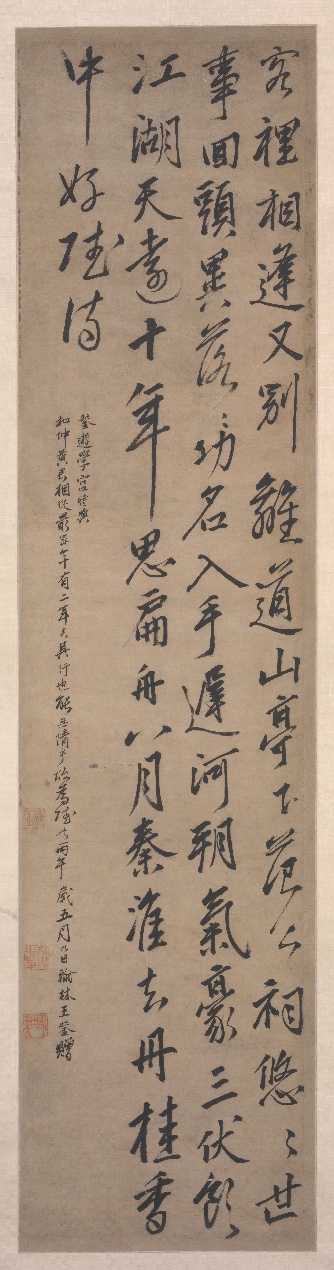 客裡相逢又別離道山亭下范公祠悠〻世
事回頭異落〻功名入手遲河朔氣豪三伏飲
江湖天遠十年思扁舟八月秦淮去丹桂香
中好陸沉
鏊遊學宮時與
和仲黃君相從最深今十有二年矣其行也能無情乎
丙午歲五月八日翰林王鏊贈